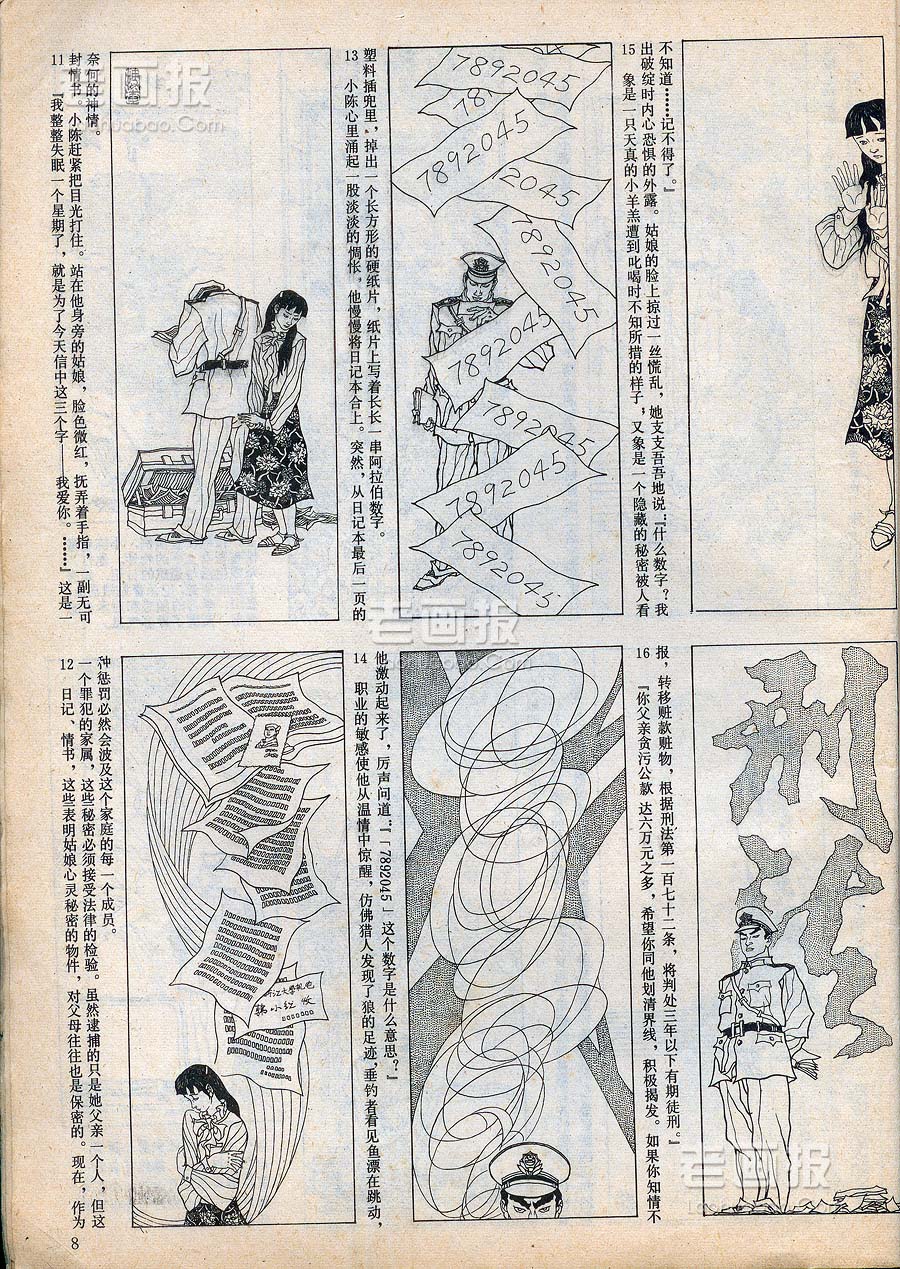 11 『我整整失眠一个星期了，就是为了今天信中这三个字——我爱你。……』这是一
封情书。小陈赶紧把目光打住。站在他身旁的姑娘，脸色微红，抚弄着手指，一副无可
奈何的神情。
12 日记、情书，这些表明姑娘心灵秘密的物件，对父母往往也是保密的。现在，作为
一个罪犯的家属，这些秘密必须接受法律的检验。虽然逮捕的只是她父亲一个人，但这
种惩罚必然会波及这个家庭的每一个成员。
韩小红 收
7892045
7892045
2045
7892045
7892045
7892045
7892045
7892045
13 小陈心里涌起一股淡淡的惆怅，他慢慢将日记本合上。突然，从日记本最后一页的
塑料插兜里，掉出一个长方形的硬纸片，纸片上写着长长一串阿拉伯数字。
14 职业的敏感使他从温情中惊醒，仿佛猎人发现了狼的足迹，垂钓者看见鱼漂在跳动，
他激动起来了，厉声问道：『「7892045」这个数字是什么意思？』
15 象是一只天真的小羊羔遭到叱喝时不知所措的样子，又象是一个隐藏的秘密被人看
出破绽时内心恐惧的外露。姑娘的脸上掠过一丝慌乱，她支支吾吾地说：『什么数字？我
不知道……记不得了。』
16 『你父亲贪污公款 达六万元之多，希望你同他划清界线，积极揭发。如果你知情不
报，转移赃款赃物，根据刑法第一百七十二条，将判处三年以下有期徒刑。』
刑法
8
老画报
老画报
老画报